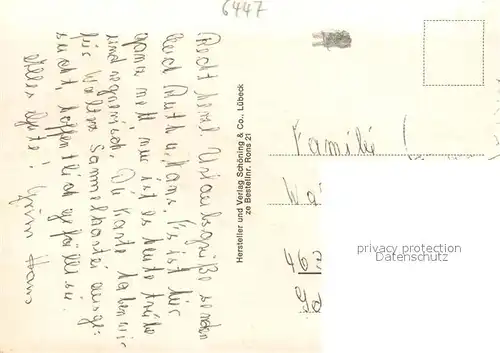 6447
Recht herzl. Urlaubsgrüße senden
Euch Ruth u. Hans. Es ist hier
ganz nett, nur ist es heute trübe
und regnerisch. Die Karte haben wir
für Walters Sammelkasten ausge-
sucht, hoffentlich gefällt sie.
Alles Gute! Hans
Hersteller und Verlag Schöning & Co., Lübeck
ze Bestellnr. Rons 21
Familie
Wa
46
Ga
privacy protection
Datenschutz